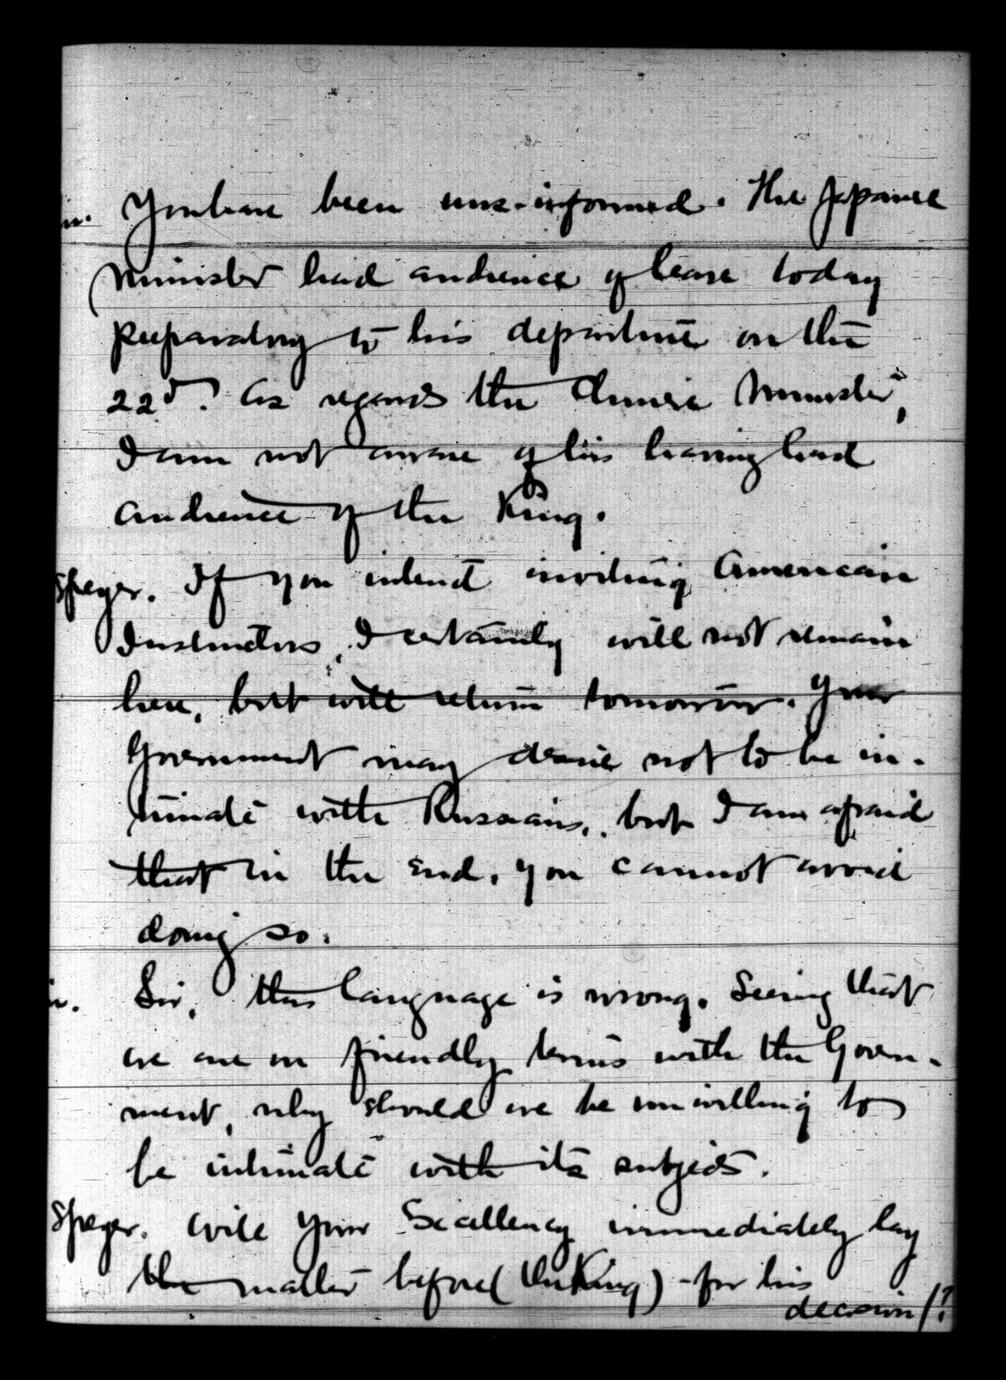 You have been mis-informed. The Japanese
Minister had audience of leave today
preparatory to his departure on the
22d. As regards the Chinese Minister,
I am not aware of his having had
audience of the King.
Speyer. If you intend inviting American
Instructors, I certainly will not remain
here, but will return tomorrow. Your
Government may desire not to be in-
timate with Russians, but I am afraid
that in the end, you cannot avoid
doing so.
Sir, this language is wrong. Seeing that
we are on friendly terms with the Govern-
ment, why should we be unwilling to
be intimate with its subjects.
Speyer. Will Your Excellency immediately lay
the matter before (the King) - for his
decision/?